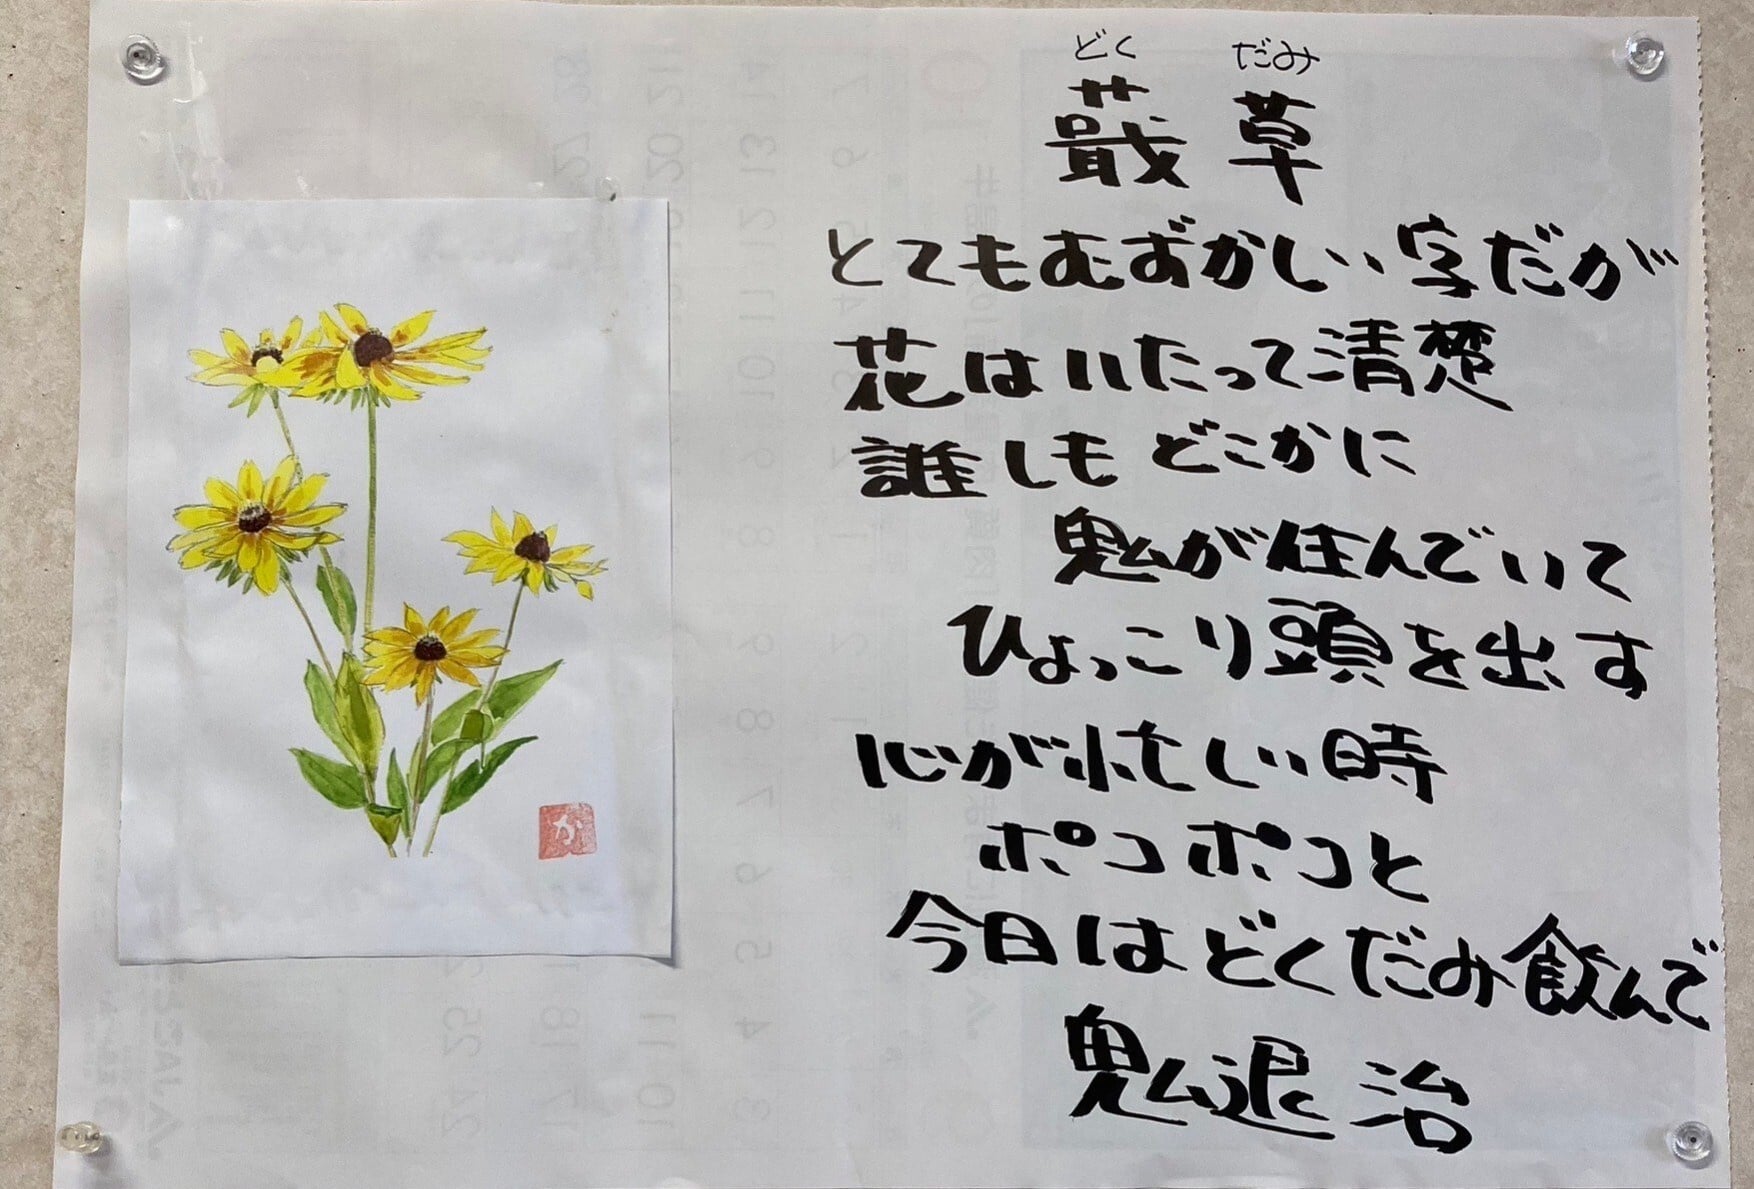 どく だみ
蕺草
とてもむずかしい字だが
花はいたって清楚
誰しもどこかに
鬼が住んでいて
ひょっこり頭を出す
心が忙しい時
ポコポコと
今日はどくだみ飲んで
鬼退治
か